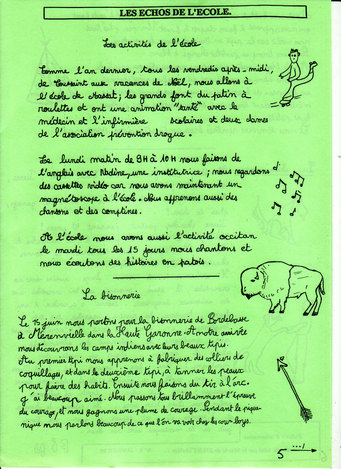 LES ECHOS DE L'ECOLE.
Les activités de l'école
Comme l'an dernier, tous les vendredis après-midi,
de Toussaint aux vacances de Noël, nous allons à
l'école de Massat; les grands font du patin à
roulettes et ont une animation "santé" avec le
médecin et l'infirmière scolaires et deux dames
de l'association prévention drogue.
Le lundi matin de 9H à 10H nous faisons de
l'anglais avec Nadine, une institutrice; nous regardons
des casettes vidéo car nous avons maintenant un
magnétoscope à l'école. Nous apprenons aussi des
chansons et des comptines.
A l'école nous avons aussi l'activité occitan
le mardi tous les 15 jours nous chantons et
nous écoutons des histoires en patois.
La bisonnerie
Le 15 juin nous partons pour la bisonnerie de Bordebasse
à Merenvielle dans la Haute Garonne. A notre arrivée
nous découvrons les camps indiens avec leurs beaux tipis.
Au premier tipi nous apprenons à fabriquer des colliers de
coquillages, et dans le deuxième tipi, à tanner les peaux
pour faire des habits. Ensuite nous faisons du tir à l'arc.
J'ai beaucoup aimé. Nous passons tous brillamment l'épreuve
du courage, et nous gagnons une plume de courage. Pendant le pique-
nique nous parlons beaucoup de ce que l'on va voir chez les cow-boys.
5 ...